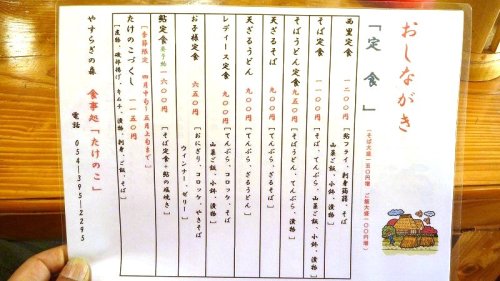 おしながき
「定食」
(そば大盛一五〇円増 ご飯大盛一〇〇円増)
西里定食 一二〇〇円 [鮎フライ、刺身蒟蒻、そば
山菜ご飯、小鉢、漬物]
そば定食 一一〇〇円 [そば、てんぷら、山菜ご飯、小鉢、漬物]
そばうどん定食 九五〇円 [そばうどん、てんぷら、漬物]
天ざるそば 九〇〇円 [てんぷら、ざるそば]
天ざるうどん 九〇〇円 [てんぷら、ざるうどん]
レディース定食 九〇〇円 [てんぷら、コロッケ、そば
山菜ご飯、小鉢、漬物]
お子様定食 六五〇円 [おにぎり、コロッケ、やきそば
ウインナー、ゼリー]
鮎定食 一六〇〇円 [そば定食+鮎の塩焼き]
[季節限定 四月中旬~五月上旬まで]
たけのこづくし 一一五〇円
[煮物、磯部揚げ、キムチ、漬物、刺身、ご飯、そば]
やすらぎの森 食事処「たけのこ」
電話 054-395-2295